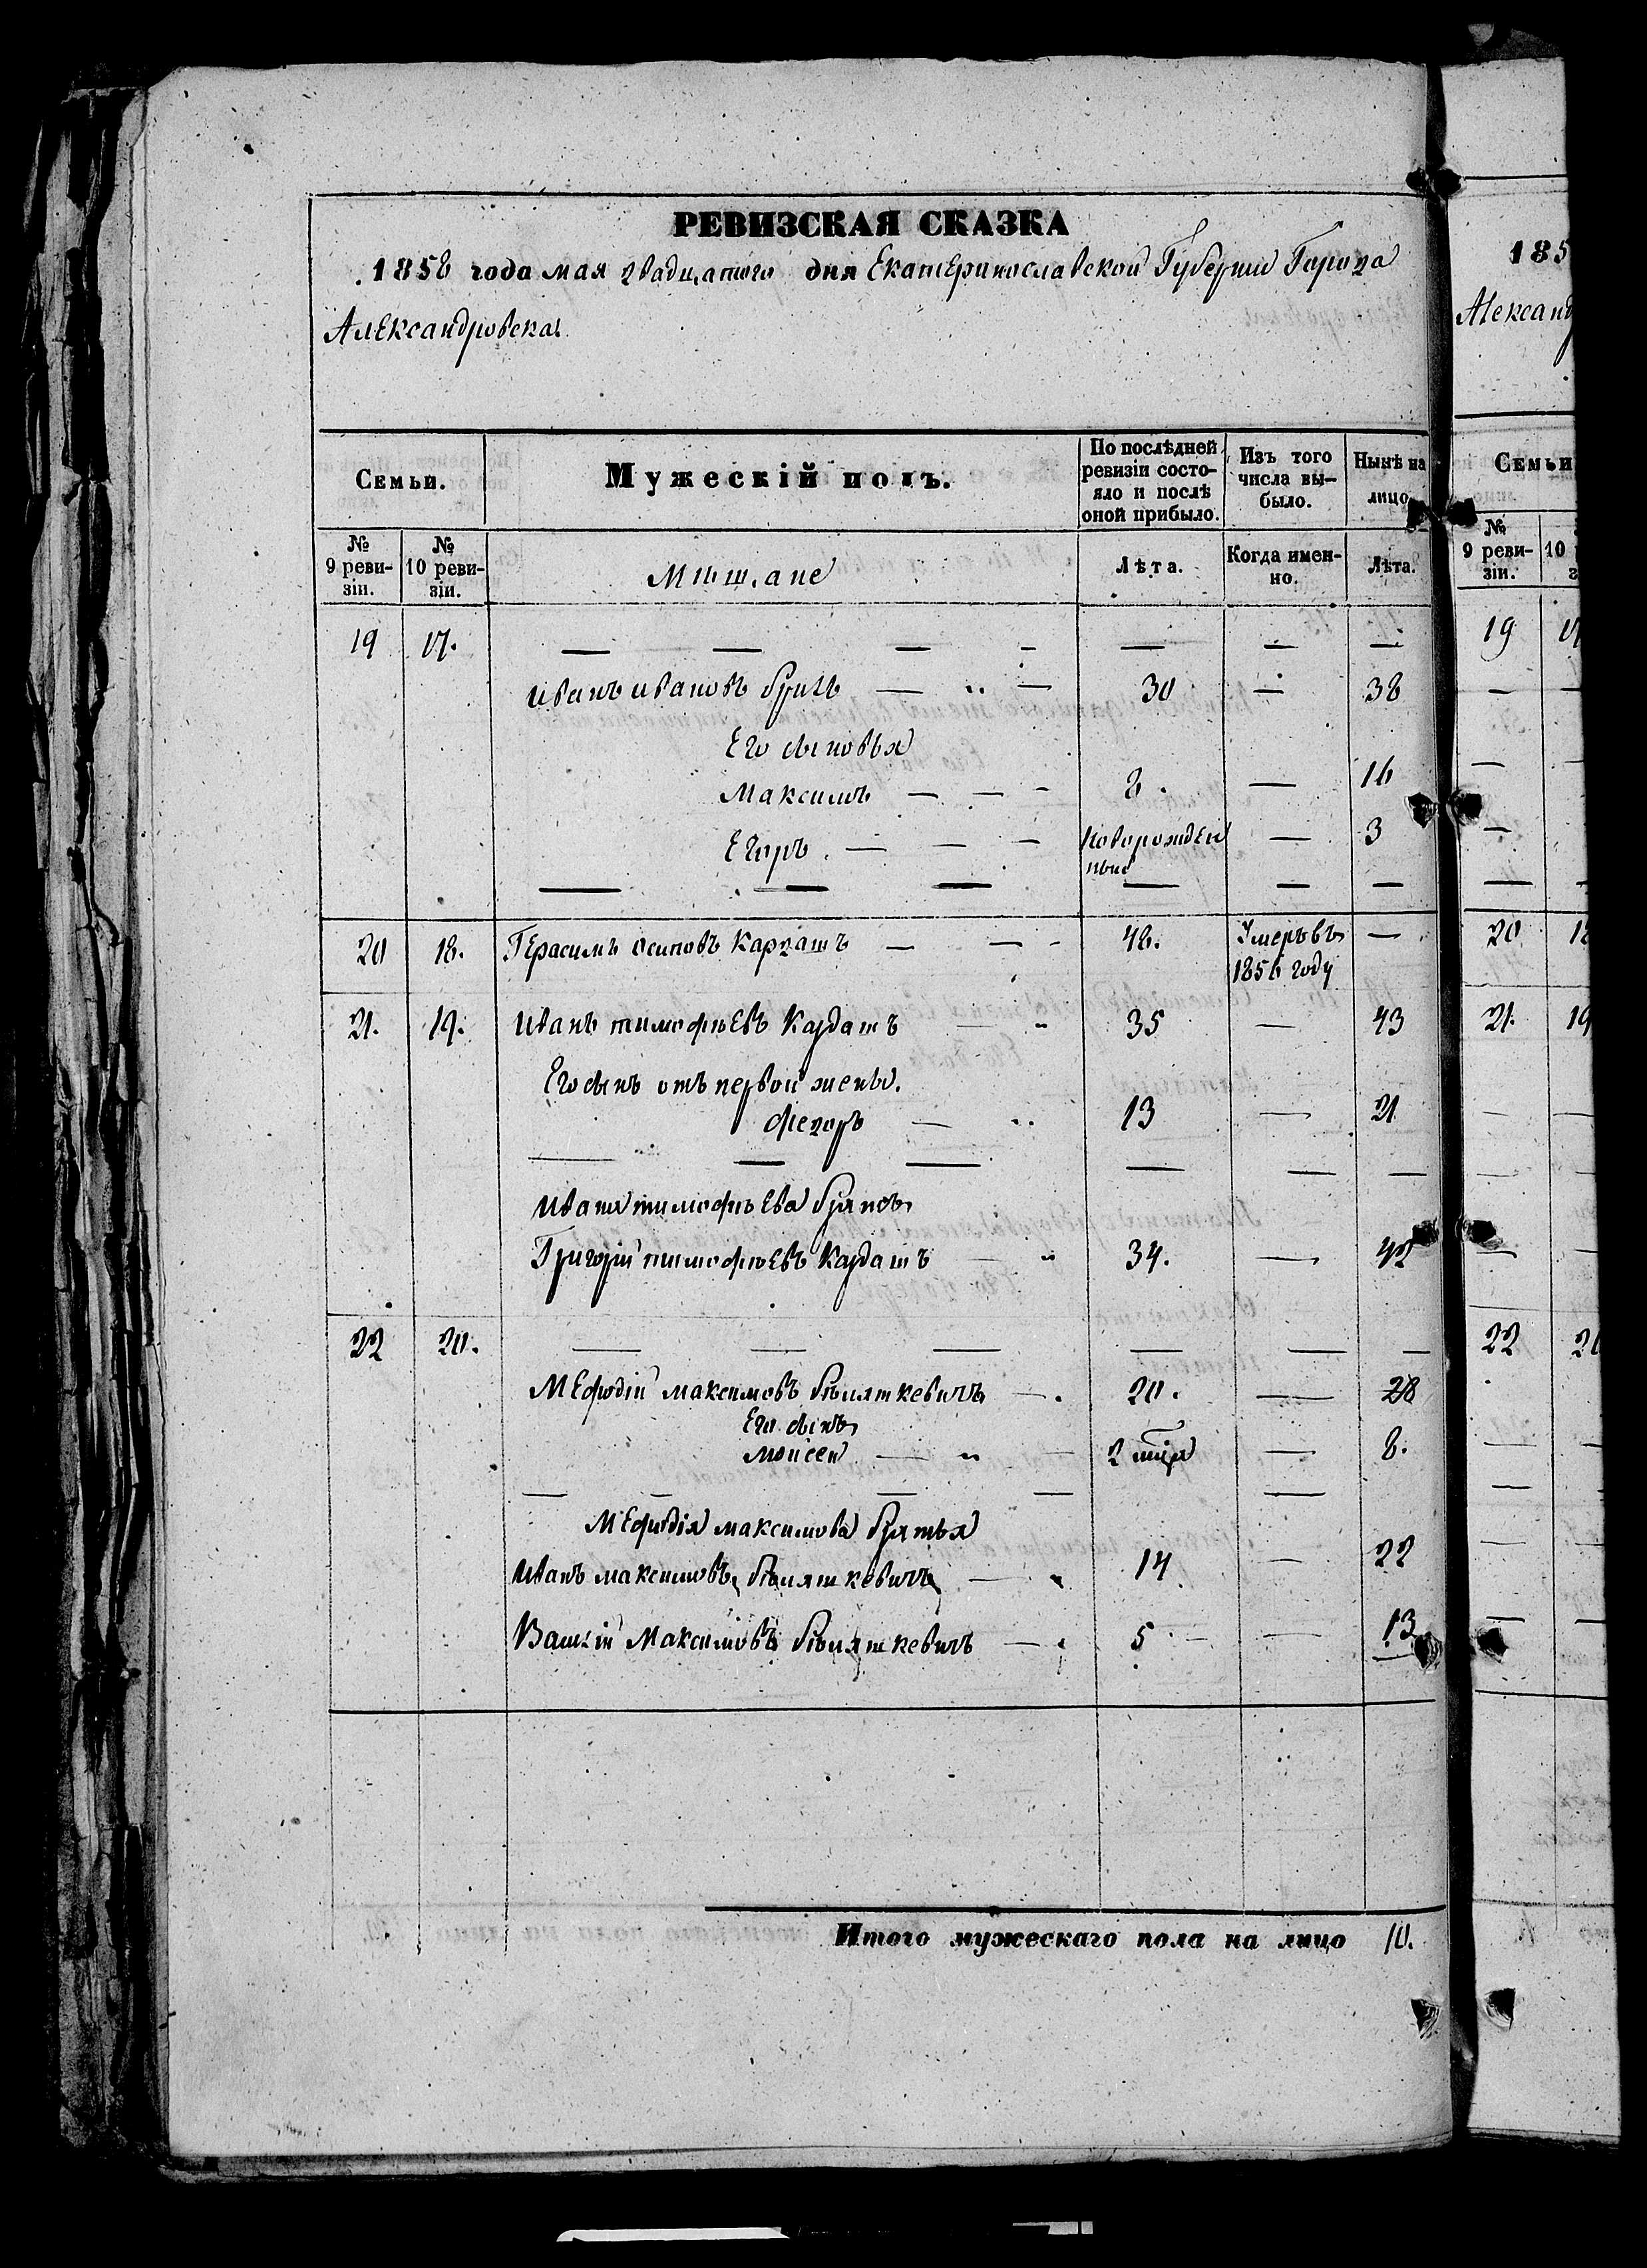 РЕВИЗСКАЯ СКАЗКА
1858 года мая двадцатого дня Екатеринославской Губерніи Города
Александровска.
185
Александ
Семьи.
Мужескій полъ.
По послѣдней
ревизіи состо-
яло и послѣ
оной прибыло.
Изъ того
числа вы-
было.
Нынѣ на
лицо.
Семьи
№
9 реви-
зіи.
№
10 реви-
зіи.
Мѣщане
Лѣта.
Когда имен-
но.
Лѣта.
№
9 реви-
зіи.
10
з
19 17. — — — - — — — 19 17
Иванъ Ивановъ — 30 — 38
Его сыновья
Максимъ — — - 8. — 16
Егоръ. — — — Новорожден — 3
ный
20 18. Герасимъ Осиповъ Кардашъ — — - 48. Умеръ въ — 20 18
1856 году
21. 19. Иванъ Тимофѣевъ Кардашъ — 35 — 43 21. 19
Его сынъ отъ первой жены.
Федоръ — 13 — 21
Ивана Тимофѣева братъ
Григорій Тимофѣевъ Кардашъ — 34. — 42
22 20. — — — — — — 22 20
Мефодій Максимовъ — 20. — 28
Его сынъ
Моисей — 2 — 8.
Мефодія Максимова братья
Иванъ Максимовъ — 14 — 22
Василій Максимовъ — 5 — 13
Итого мужескаго пола на лицо 10.